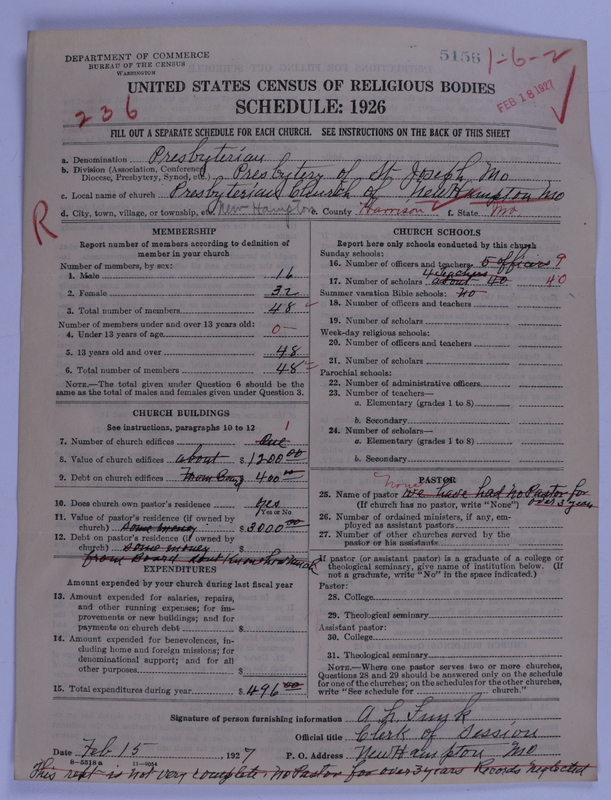 DEPARTMENT OF COMMERCE
BUREAU OF THE CENSUS
WASHINGTON
5156 1-6-2
UNITED STATES CENSUS OF RELIGIOUS BODIES
SCHEDULE: 1926
FEB 18 1927
236
FILL OUT A SEPARATE SCHEDULE FOR EACH CHURCH. SEE INSTRUCTIONS ON THE BACK OF THIS SHEET
a. Denomination Presbyterian
b. Division (Association, Conference, Diocese, Presbytery, Synod, etc.) Presbytery of St Joseph, Mo
c. Local name of church Presbyterian Church of New Hampton Mo
d. City, town, village, or township, etc. New Hampton e. County Harrison f. State Mo.
R
MEMBERSHIP
Report number of members according to definition of
member in your church
Number of members, by sex:
1. Male 16
2. Female 32
3. Total number of members 48
Number of members under and over 13 years old:
4. Under 13 years of age 0
5. 13 years old and over 48
6. Total number of members 48
NOTE.—The total given under Question 6 should be the
same as the total of males and females given under Question 3.
CHURCH BUILDINGS
See instructions, paragraphs 10 to 12
7. Number of church edifices One 1
8. Value of church edifices about $ 1200 00
9. Debt on church edifices 400 00
10. Does church own pastor's residence? yes
Yes or No
11. Value of pastor's residence (if owned by
church) some money $ 3000 00
12. Debt on pastor's residence (if owned by
church) some money $
from Board dont know how much
EXPENDITURES
Amount expended by your church during last fiscal year
13. Amount expended for salaries, repairs,
and other running expenses; for im-
provements or new buildings; and for
payments on church debt $
14. Amount expended for benevolences, in-
cluding home and foreign missions; for
denominational support; and for all
other purposes $
15. Total expenditures during year $ 496 00
CHURCH SCHOOLS
Report here only schools conducted by this church
Sunday schools:
16. Number of officers and teachers 5 officers 9
4 teachers
17. Number of scholars about 40 40
Summer vacation Bible schools: no
18. Number of officers and teachers
19. Number of scholars
Week-day religious schools:
20. Number of officers and teachers
21. Number of scholars
Parochial schools:
22. Number of administrative officers
23. Number of teachers—
a. Elementary (grades 1 to 8)
b. Secondary
24. Number of scholars—
a. Elementary (grades 1 to 8)
b. Secondary
PASTOR
None
25. Name of pastor we have had no Pastor for
(If church has no pastor, write "None") over 3 years
26. Number of ordained ministers, if any, em-
ployed as assistant pastors
27. Number of other churches served by the
pastor or his assistants
If pastor (or assistant pastor) is a graduate of a college or
theological seminary, give name of institution below. (If
not a graduate, write "No" in the space indicated.)
Pastor:
28. College
29. Theological seminary
Assistant pastor:
30. College
31. Theological seminary
NOTE.—Where one pastor serves two or more churches,
Questions 28 and 29 should be answered only on the schedule
for one of the churches; on the schedules for the other churches,
write "See schedule for church."
Signature of person furnishing information A L Funk
Official title Clerk of Session
Date Feb 15, 1927 P. O. Address New Hampton Mo
8—5518 a 11—9054
This rept is not very complete no Pastor for over 3 years Records neglected